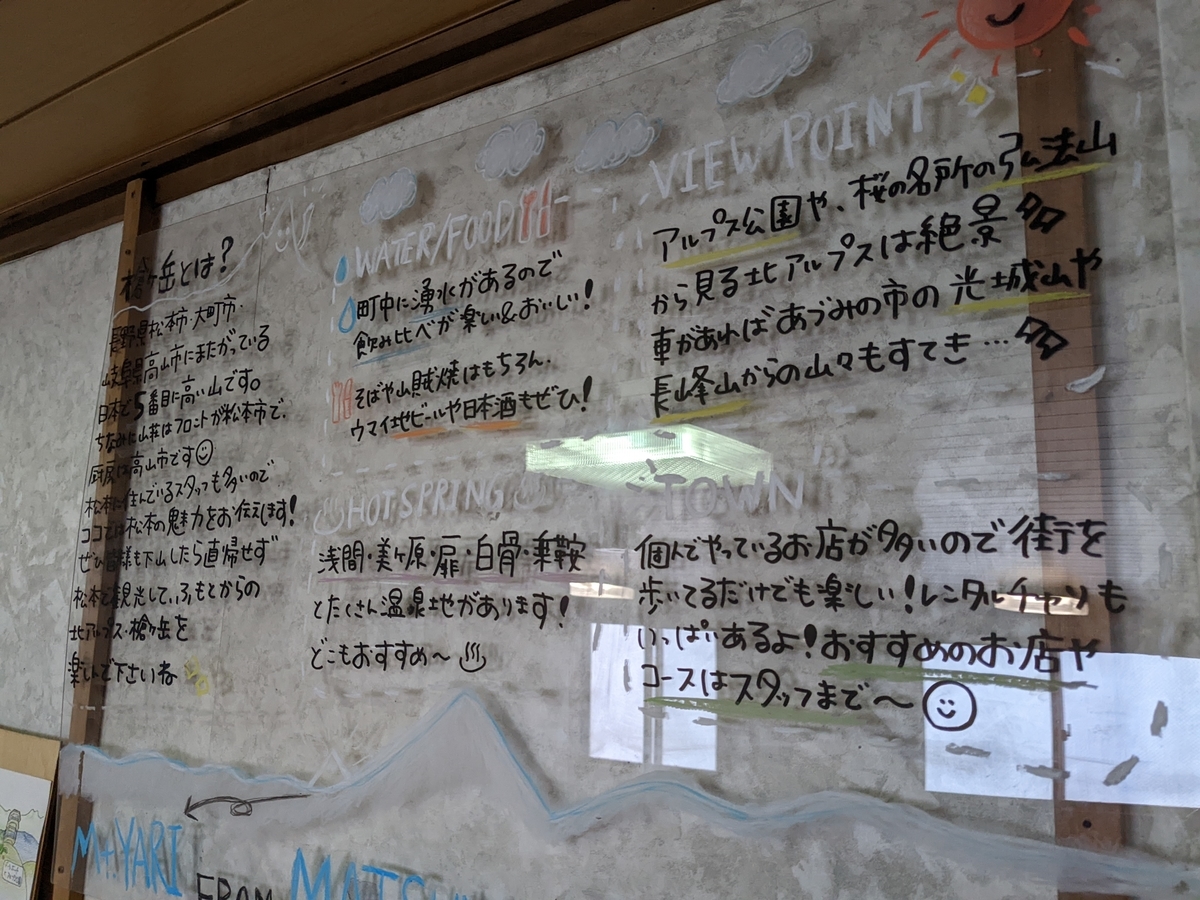 槍ヶ岳とは?
長野県松本市・大町市・
岐阜県高山市にまたがっている
日本で5番目に高い山です。
ちなみに山荘はフロントが松本市で、
厨房は高山市です
松本に住んでいるスタッフも多いので
ココでは松本の魅力をお伝えします!
ぜひ皆様も下山したら直帰せず
松本で観光して、ふもとからの
北アルプス・槍ヶ岳を
楽しんで下さいね
WATER/FOOD
町中に湧水があるので
飲み比べが楽しい&おいしい!
そばや山賊焼はもちろん、
ウマイ地ビールや日本酒もぜひ!
VIEW POINT
アルプス公園や、桜の名所の弘法山
から見る北アルプスは絶景
車があればあづみの市の光城山や
長峰山からの山々もすてき…
HOTSPRING
浅間・美ヶ原・扉・白骨・乗鞍
とたくさん温泉地があります!
どこもおすすめ〜♨
TOWN
個人でやっているお店が多いので街を
歩いてるだけでも楽しい!レンタルチャリも
いっぱいあるよ!おすすめのお店や
コースはスタッフまで〜
Mt.YARI FROM